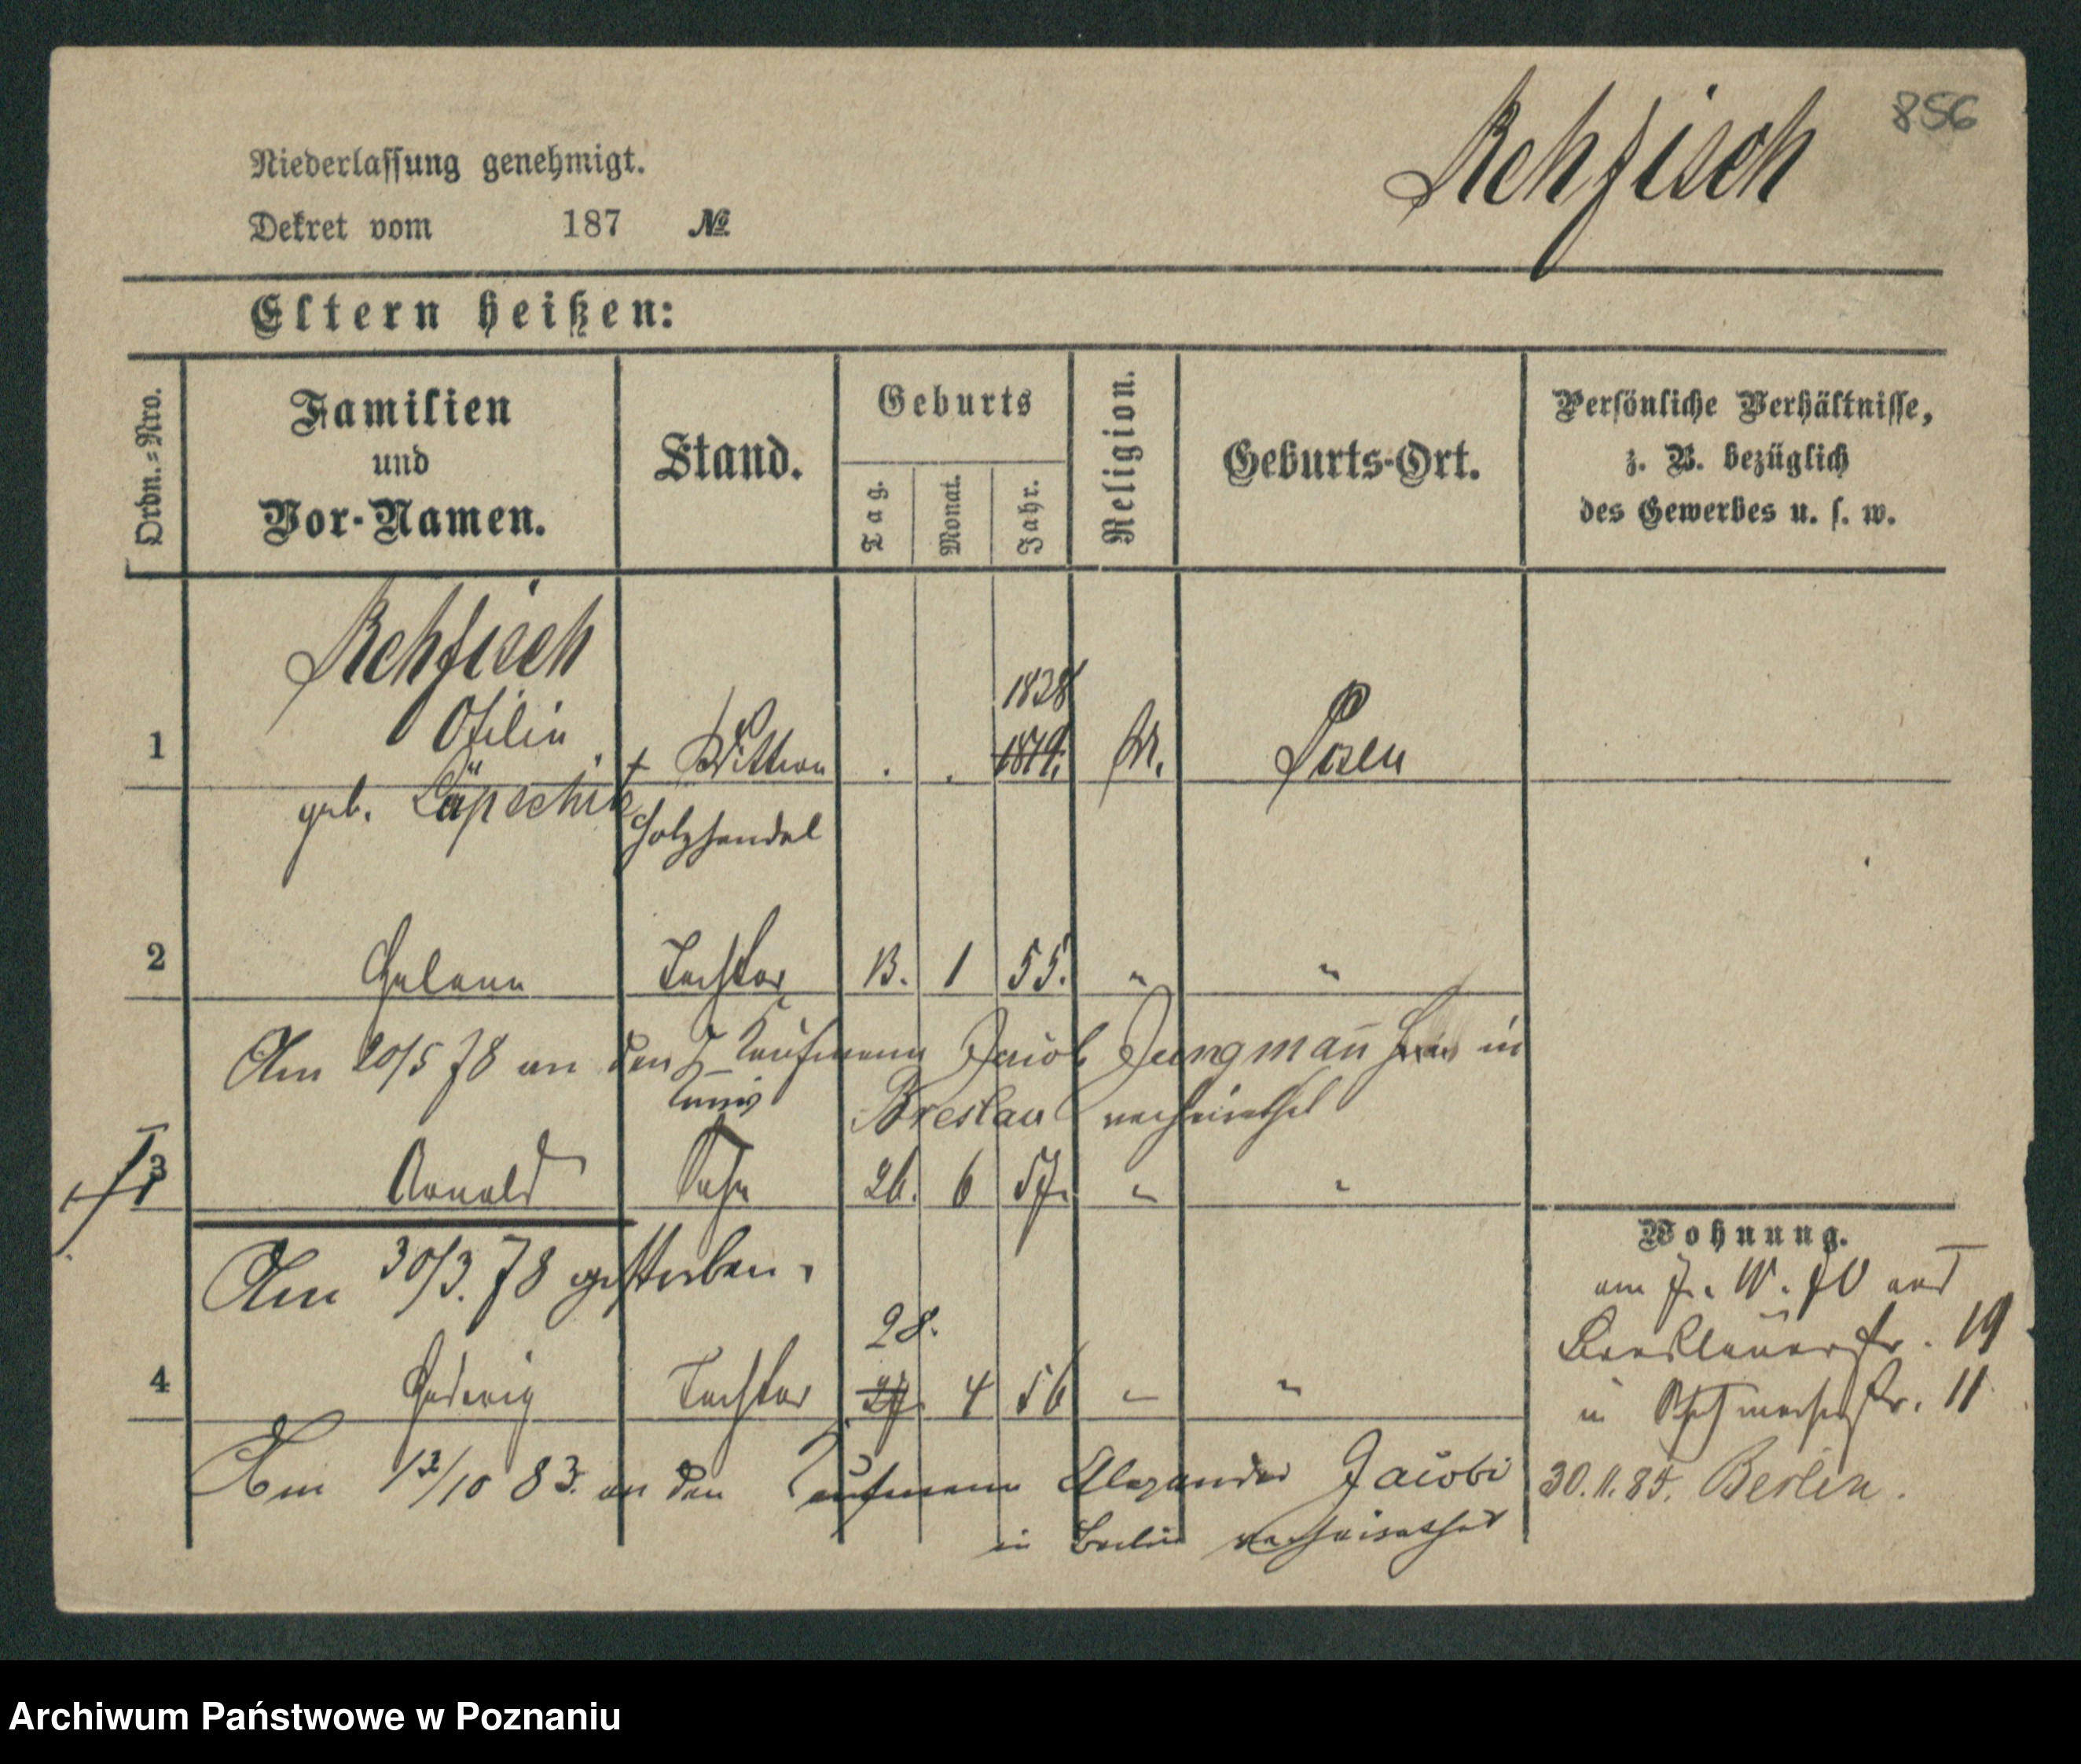 856
Rehfisch
Niederlassung genehmigt.
Dekret vom 187 №
Eltern heißen:
Ordn.=Nro.
Familien
und
Vor-Namen.
Stand.
Geburts
Tag.
Monat.
Jahr.
Religion.
Geburts-Ort.
Persönliche Verhältnisse,
z. B. bezüglich
des Gewerbes u. s. w.
Rehfisch
1838
1 Otilie + Wittwe . . 1819. M. Posen
geb. Läpschik Holzhandel
2 Helene Tochter 13. 1 55. " "
Am 20/5 78 an den Kaufmann Jacob Jungman̄ in
Breslau verheirathet
3 Arnold Sohn 26. 6 57. " "
Am 30/3. 78 gestorben.
28.
4 Hedwig Tochter 27. 4 56 " "
Am 13/10 83. an den Kaufmann Alexander Jacobi
in Berlin verheirathet
Wohnung.
am
Breslauerstr. 19
11
30.11.85. Berlin.
Archiwum Państwowe w Poznaniu